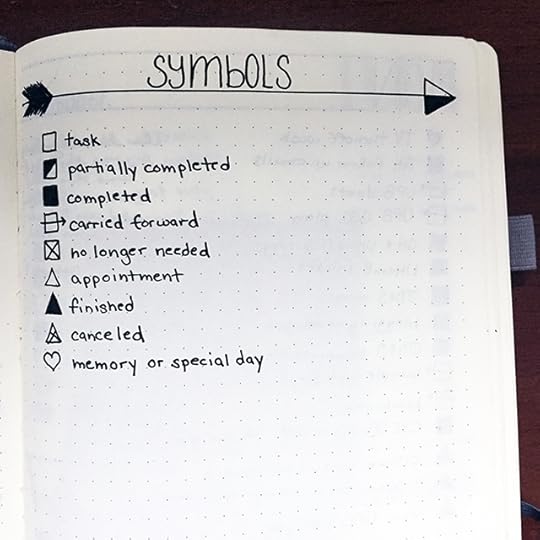 SYMBOLS
task
partially completed
completed
carried forward
no longer needed
appointment
finished
canceled
memory or special day